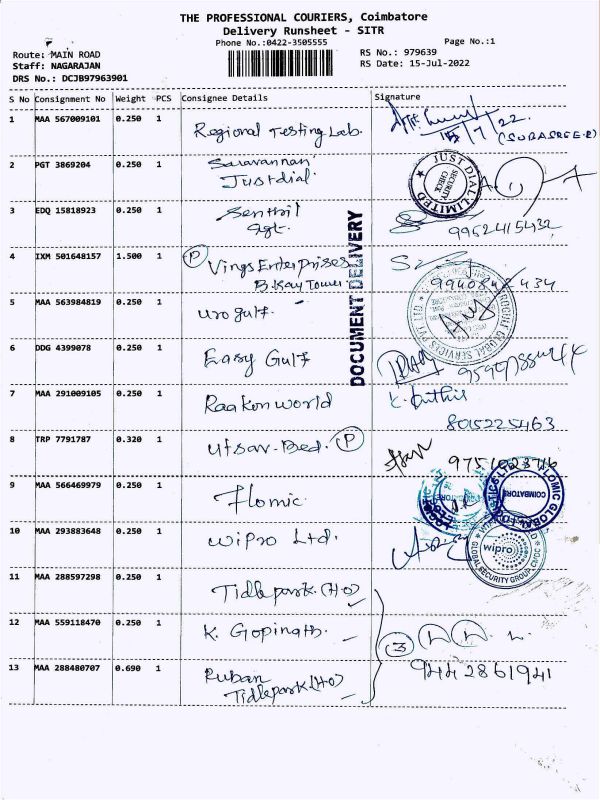 THE PROFESSIONAL COURIERS, Coimbatore
Delivery Runsheet - SITR
Phone No.:0422-3505555
Page No.:1
Route: MAIN ROAD
RS No.: 979639
Staff: NAGARAJAN
RS Date: 15-Jul-2022
DRS No.: DCJB97963901
S No Consignment No Weight PCS Consignee Details Signature
1 MAA 567009101 0.250 1 Regional Testing Lab.
15/7/22
(SUBASREE.R)
2 PGT 3869204 0.250 1 Saravannan
Justdial.
JUST DIAL LIMITED
SECURITY
CHECK
3 EDQ 15818923 0.250 1 Senthil
Agt.
9952415432
DOCUMENT DELIVERY
4 IXM 501648157 1.500 1 (P) Vings Enterprises
B.Kay Tower
434
5 MAA 563984819 0.250 1 uro gulf.
GLOBAL SERVICES PVT LTD
6 DDG 4399078 0.250 1 Easy Gulf
7 MAA 291009105 0.250 1 Raakon world
8015225463
8 TRP 7791787 0.320 1 Utsav-Bed. (P)
9 MAA 566469979 0.250 1 Flomic.
COIMBATORE
10 MAA 293883648 0.250 1 Wipro Ltd.
wipro
GLOBAL SECURITY GROUP, CMDC
11 MAA 288597298 0.250 1 Tidlepark.(HO)
12 MAA 559118470 0.250 1 K. Gopinath.
(3)
13 MAA 288480707 0.690 1 Ruban
Tidlepark(HO)
9442861941